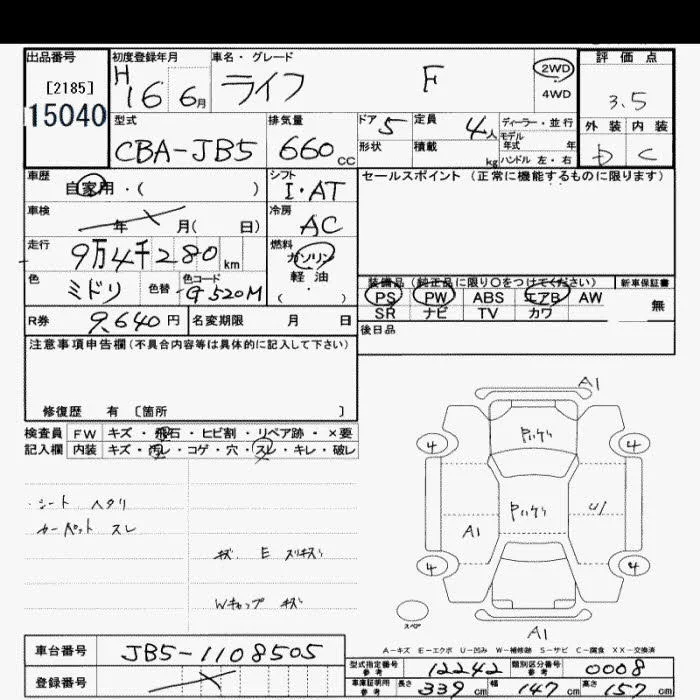 出品番号 初度登録年月 車名・グレード 評価点
[2185] H 16 6月 ライフ F 2WD 3.5
15040 4WD
型式 排気量 ドア 5 定員 4人 ディーラー・並行 外装 内装
CBA-JB5 660 CC 形状 積載 kg モデル年式 年 D C
ハンドル 左・右
車歴 自家用・( ) シフト I・AT セールスポイント (正常に機能するものに限ります)
車検 年 月( 日) 冷房 AC
走行 9万4千280 km 燃料 ガソリン
軽油
色 ミドリ 色替 色コード G520M ( ・ )
装備品 (純正品に限り○をつけてください) 新車保証書
PS PW ABS エアB AW 無
SR ナビ TV カワ
R券 9,640円 名変期限 月 日 後日品
注意事項申告欄(不具合内容等は具体的に記入して下さい)
修復歴 有 〔箇所 〕
検査員 FW キズ・飛石・ヒビ割・リペア跡・×要
記入欄 内装 キズ・汚レ・コゲ・穴・スレ・キレ・破レ
A1
4 4
シート ヘタリ
カーペット スレ
A1 U1
キズ E スリキズ
4 4
Wキャップ キズ
スペア
A1
A-キズ E-エクボ U-凹み W-補修跡 S-サビ C-腐食 XX-交換済
車台番号 JB5-1108505
型式指定番号 参考 12242 類別区分番号 参考 0008
登録番号
車庫証明用 参考 長さ 339 cm 幅 147 cm 高さ 157 cm